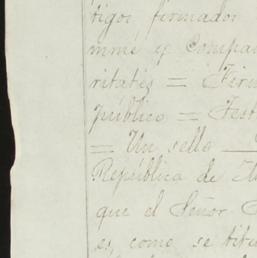 tigos, firmados
mme y Compa
ritatis = Firm
público = Test
= Un sello
República de
que el Señor
es, como se titu